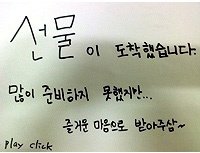 선물이 도착했습니다.
많이 준비하지 못했지만...
즐거운 마음으로 받아주삼~
play click